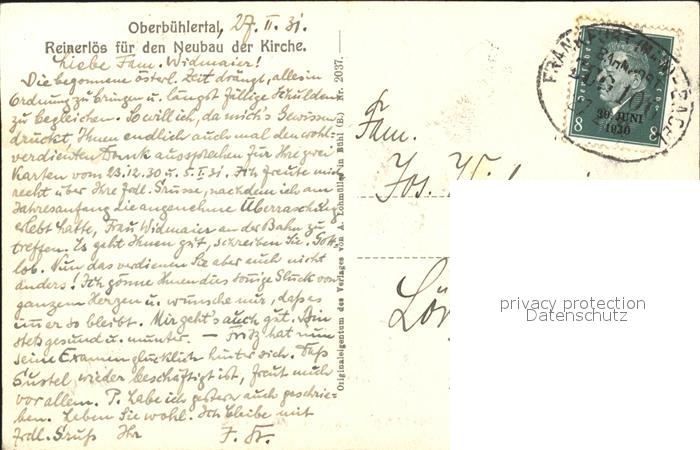 Oberbühlertal, 27. II. 31.
Reinerlös für den Neubau der Kirche.
Liebe Fam. Widmaier!
Die begonnene österl. Zeit drängt, alles in
Ordnung zu bringen u. längst fällige Schulden
zu begleichen. So will ich, da mich's Gewissen
drückt, Ihnen endlich auch mal den wohl-
verdienten Dank aussprechen für Ihre zwei
Karten vom 23.12.30 u. 5.I.31. Ich freute mich
recht über Ihre frdl. Grüsse, nachdem ich am
Jahresanfang die angenehme Überraschung
erlebt hatte, Frau Widmaier an der Bahn zu
treffen. Es geht Ihnen gut, schreiben Sie. Gott-
lob. Nun das verdienen Sie aber auch nicht
anders! Ich gönne Ihnen dies Glück von
ganzem Herzen u. wünsche nur, dass es
immer so bleibt. Mir geht's auch gut. Bin
stets gesund u. munter. — Fritz hat nun
seine Examen glücklich hinter sich. Dass
Gustel wieder beschäftigt ist, freut mich
vor allem. P. habe ich gestern auch geschrie-
ben. Leben Sie wohl. Ich bleibe mit
frdl. Gruß Ihr F. St.
Originaleigentum des Verlages von A. Lohmüller in Bühl (B.) Nr. 2037.
Fam.
Jos.
DEUTSCHES REICH
8 8
30. JUNI
1930
FRANKFURT
BAHNPOST
privacy protection
Datenschutz